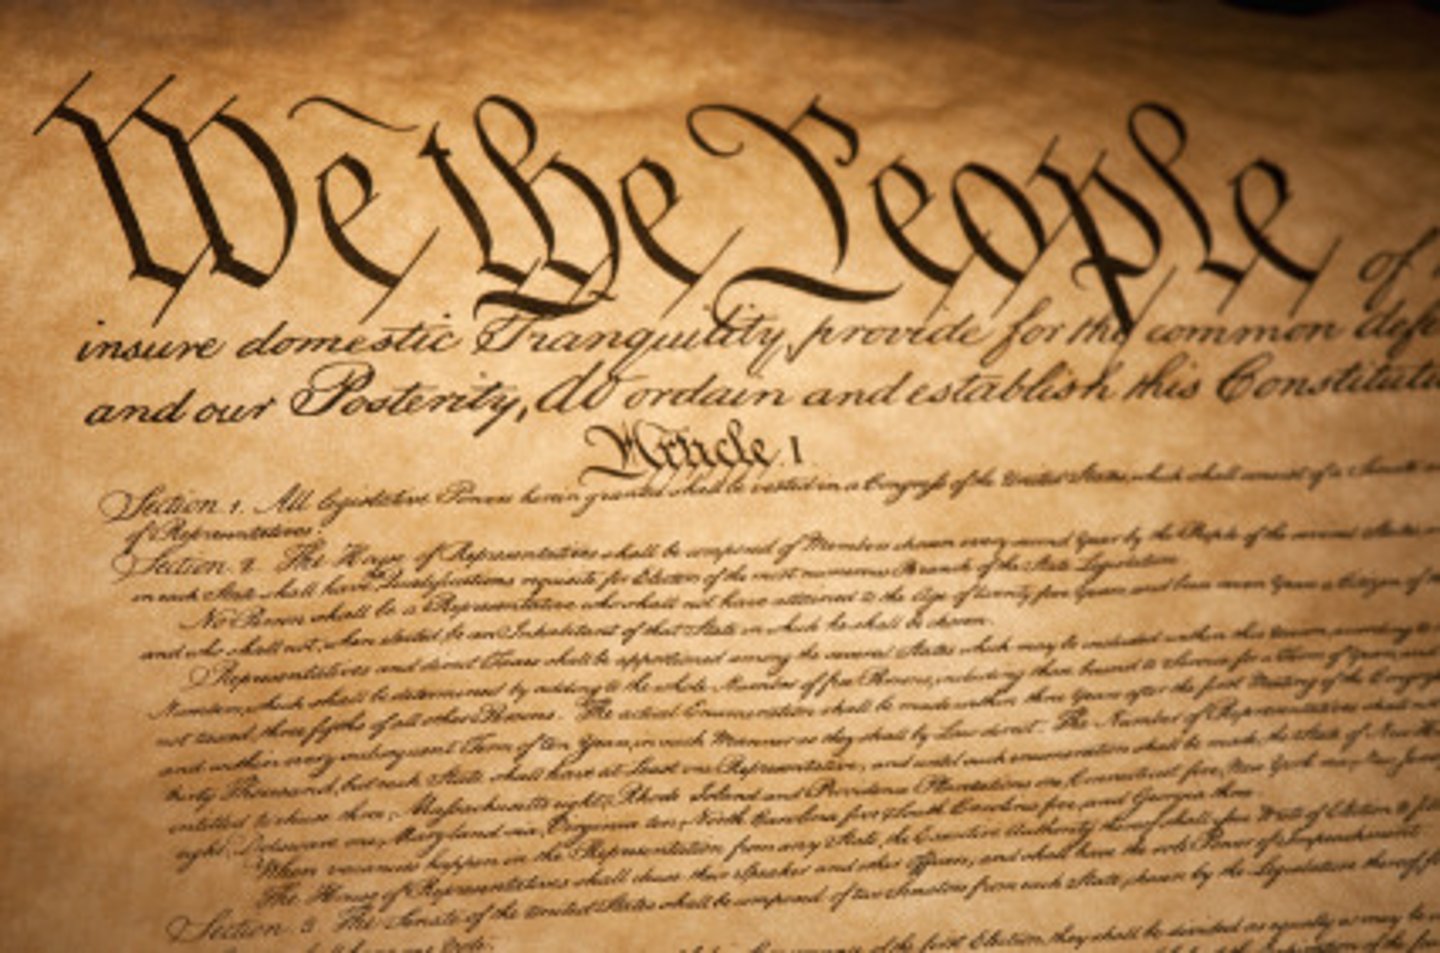 We the People of
insure domestic Tranquility, provide for the common defe
and our Posterity, do ordain and establish this Constitutio
Article. I.
Section. 1. All legislative Powers herein granted shall be vested in a Congress of the United States, which shall consist of a Senate
of Representatives.
Section. 2. The House of Representatives shall be composed of Members chosen every second Year by the People of the several States
in each State shall have the Qualifications requisite for Electors of the most numerous Branch of the State Legislature.
No Person shall be a Representative who shall not have attained to the Age of twenty five Years, and been seven Years a Citizen of the
and who shall not, when elected, be an Inhabitant of that State in which he shall be chosen.
Representatives and direct Taxes shall be apportioned among the several States which may be included within this Union, according to
Numbers, which shall be determined by adding to the whole Number of free Persons, including those bound to Service for a Term of Years, and
not taxed, three fifths of all other Persons. The actual Enumeration shall be made within three Years after the first Meeting of the Congress
and within every subsequent Term of ten Years, in such Manner as they shall by Law direct. The Number of Representatives shall not
thirty Thousand, but each State shall have at Least one Representative; and until such enumeration shall be made, the State of New
entitled to chuse three, Massachusetts eight, Rhode Island and Providence Plantations one, Connecticut five, New York six, New Jersey
eight, Delaware one, Maryland six, Virginia ten, North Carolina five, South Carolina five, and Georgia three.
When vacancies happen in the Representation from any State, the Executive Authority thereof shall issue Writs of Election to
The House of Representatives shall chuse their Speaker and other Officers; and shall have the sole Power of Impeachment.
Section. 3. The Senate of the United States shall be composed of two Senators from each State, chosen by the Legislature thereof,
of the first Election, they shall be divided as equally as may be